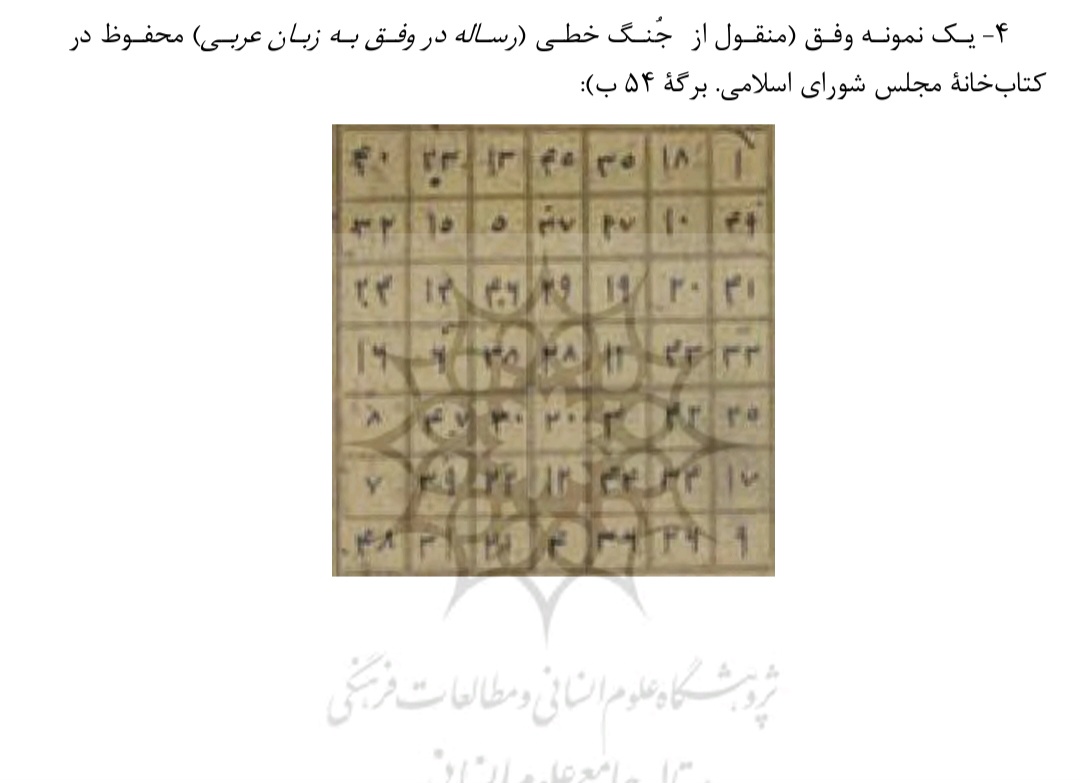 ۴- یک نمونه وفق (منقول از جُنگ خطی (رساله در وفق به زبان عربی) محفوظ در
کتاب‌خانهٔ مجلس شورای اسلامی. برگهٔ ۵۴ ب):
۱ ۱۸ ۳۵ ۴۵ ۱۳ ۲۳ ۴۰
۴۹ ۱۰ ۲۷ ۳۷ ۵ ۱۵ ۳۲
۴۱ ۲۰ ۱۹ ۲۹ ۴۶ ۱۴ ۲۴
۳۳ ۴۳ ۱۱ ۲۸ ۳۸ ۶ ۱۶
۲۵ ۴۲ ۳ ۲۰ ۳۰ ۴۷ ۸
۱۷ ۳۴ ۴۴ ۱۲ ۲۲ ۳۹ ۷
۹ ۲۶ ۳۶ ۴ ۲۱ ۳۱ ۴۸
پژوهشگاه علوم انسانی و مطالعات فرهنگی